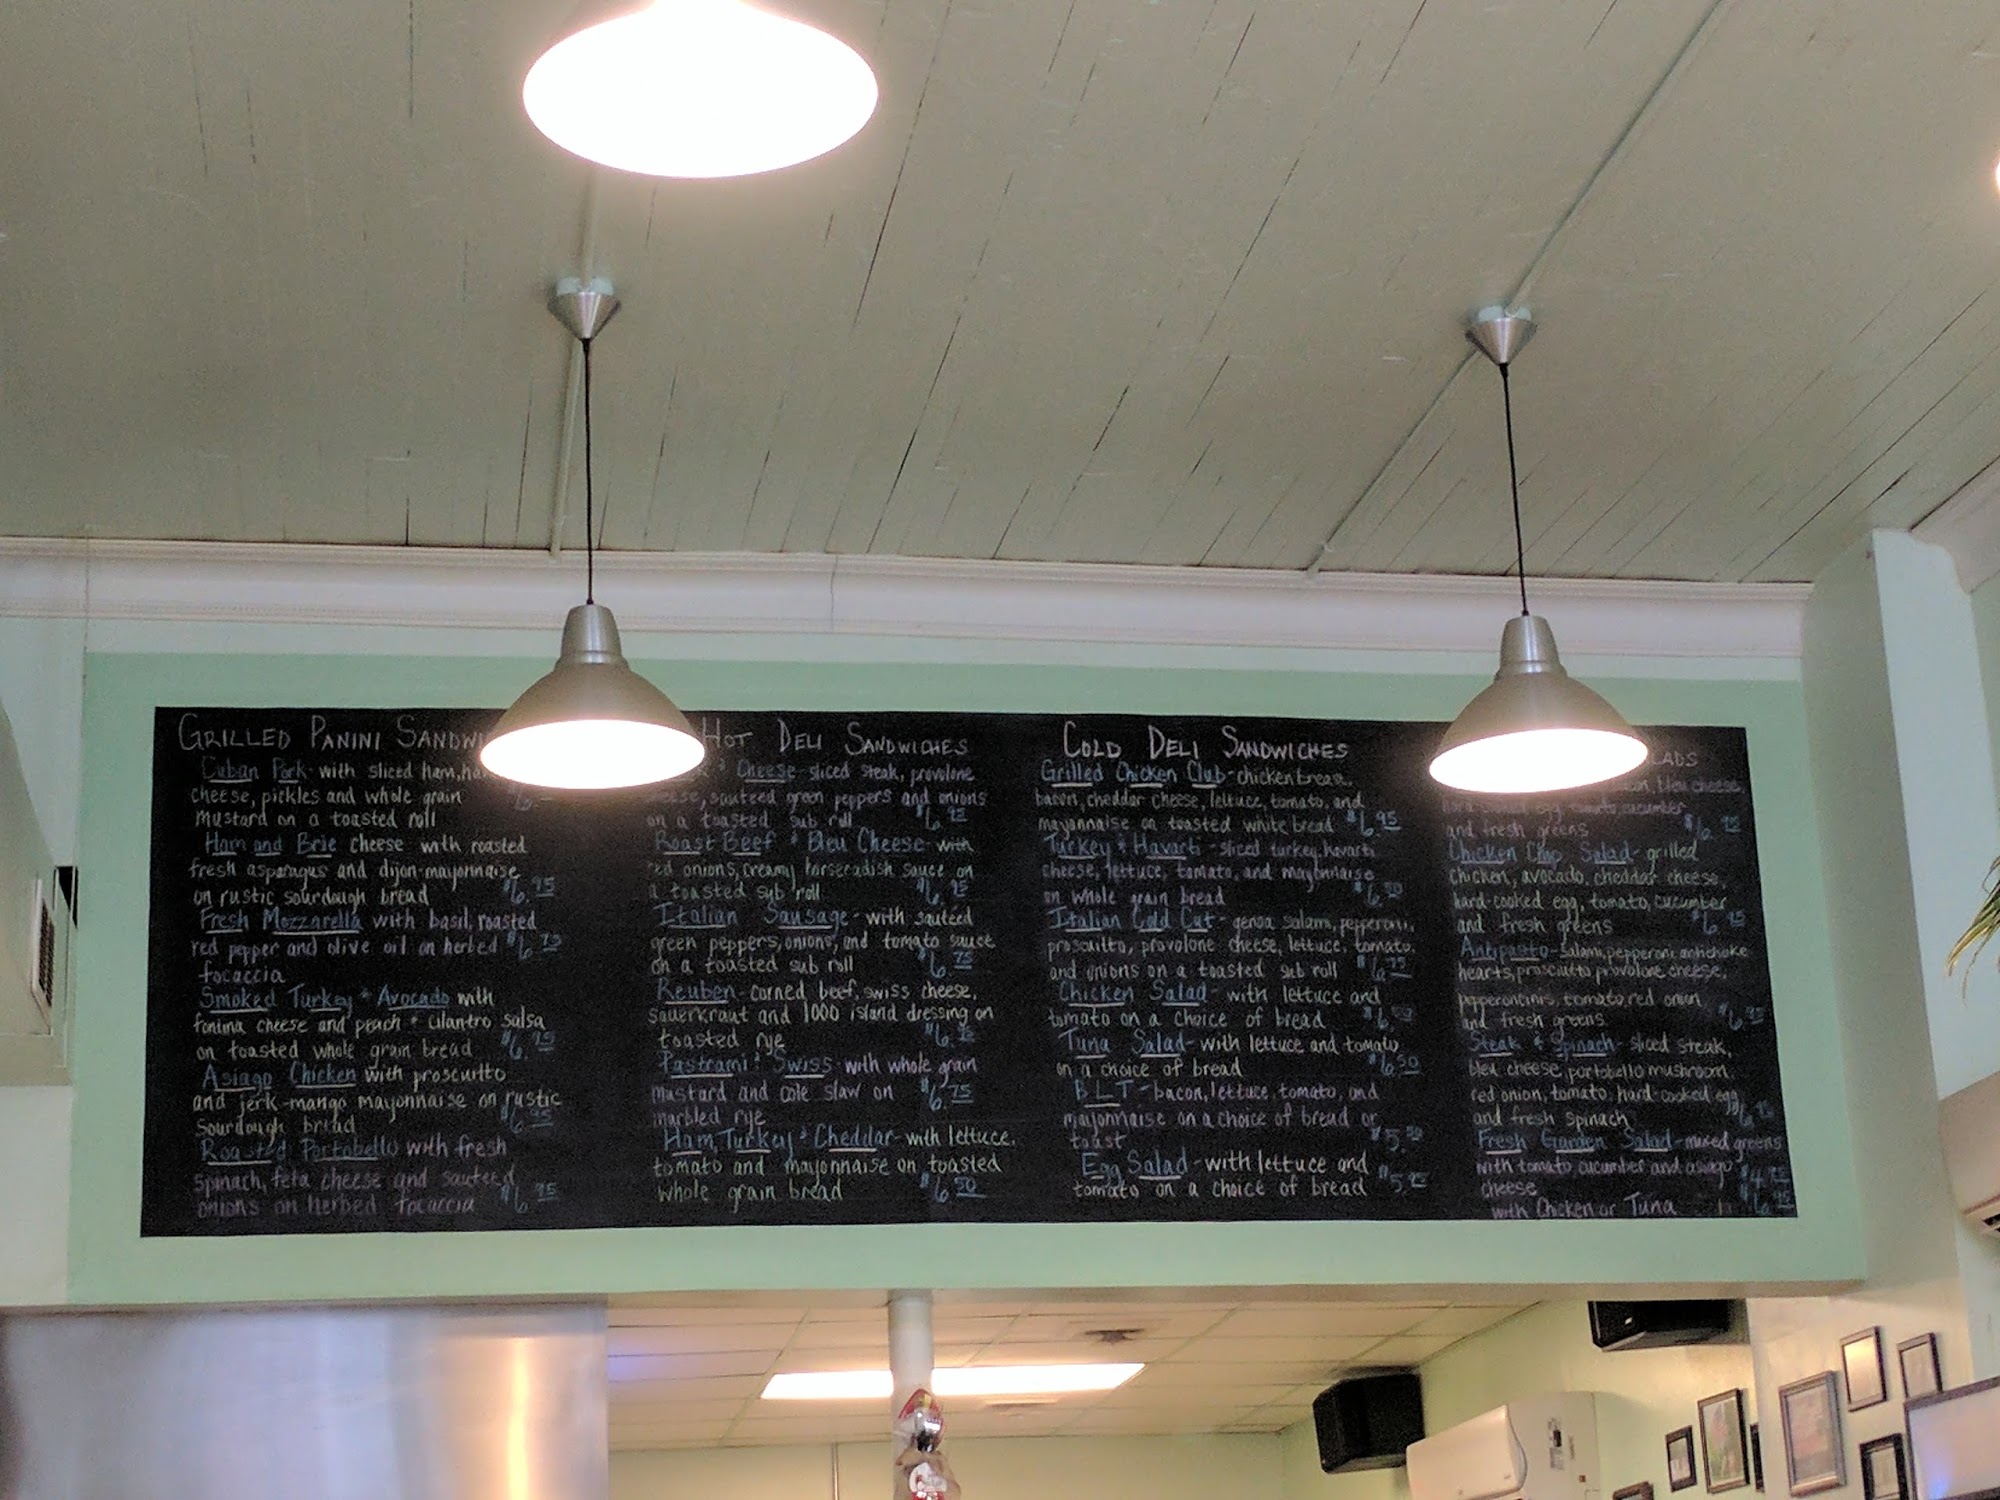 GRILLED PANINI
Cuban Pork - with sliced ham,
cheese, pickles and whole grain
mustard on a toasted roll
Ham and Brie cheese with roasted
fresh asparagus and dijon-mayonnaise
on rustic sourdough bread $6.95
Fresh Mozzarella with basil, roasted
red pepper and olive oil on herbed $6.75
focaccia
Smoked Turkey + Avocado with
fontina cheese and peach + cilantro salsa
on toasted whole grain bread $6.95
Asiago Chicken with proscuitto
and jerk-mango mayonnaise on rustic
sourdough bread $6.95
Roasted Portabello with fresh
spinach, feta cheese and sauteed
onions on herbed focaccia $6.95
HOT DELI SANDWICHES
+ Cheese - sliced steak, provolone
sauteed green peppers and onions
on a toasted sub roll $6.95
Roast Beef + Bleu Cheese - with
red onions, creamy horseradish sauce on
a toasted sub roll $6.95
Italian Sausage - with sauteed
green peppers, onions, and tomato sauce
on a toasted sub roll $6.75
Reuben - corned beef, swiss cheese,
sauerkraut and 1000 island dressing on
toasted rye
Pastrami + Swiss - with whole grain
mustard and cole slaw on $6.75
marbled rye
Ham, Turkey + Cheddar - with lettuce,
tomato and mayonnaise on toasted
whole grain bread $6.50
COLD DELI SANDWICHES
Grilled Chicken Club - chicken breast,
bacon, cheddar cheese, lettuce, tomato, and
mayonnaise on toasted white bread $6.95
Turkey + Havarti - sliced turkey, havarti
cheese, lettuce, tomato, and mayonnaise
on whole grain bread $6.50
Italian Cold Cut - genoa salami, pepperoni,
proscuitto, provolone cheese, lettuce, tomato,
and onions on a toasted sub roll $6.75
Chicken Salad - with lettuce and
tomato on a choice of bread $6.50
Tuna Salad - with lettuce and tomato
on a choice of bread $6.50
BLT - bacon, lettuce, tomato, and
mayonnaise on a choice of bread or
toast $5.50
Egg Salad - with lettuce and
tomato on a choice of bread
bleu cheese,
hard cooked egg, tomato, cucumber
and fresh greens
Chicken Chop Salad - grilled
chicken, avocado, cheddar cheese,
hard-cooked egg, tomato, cucumber
and fresh greens $6.95
Antipasto - salami, pepperoni, artichoke
hearts, prosciutto, provolone cheese,
pepperoncinis, tomato, red onion
and fresh greens $6.95
Steak + Spinach - sliced steak,
bleu cheese, portobello mushroom,
red onion, tomato, hard-cooked egg
and fresh spinach
Fresh Garden Salad - mixed greens
with tomato, cucumber and asiago
cheese
with Chicken or Tuna $6.95